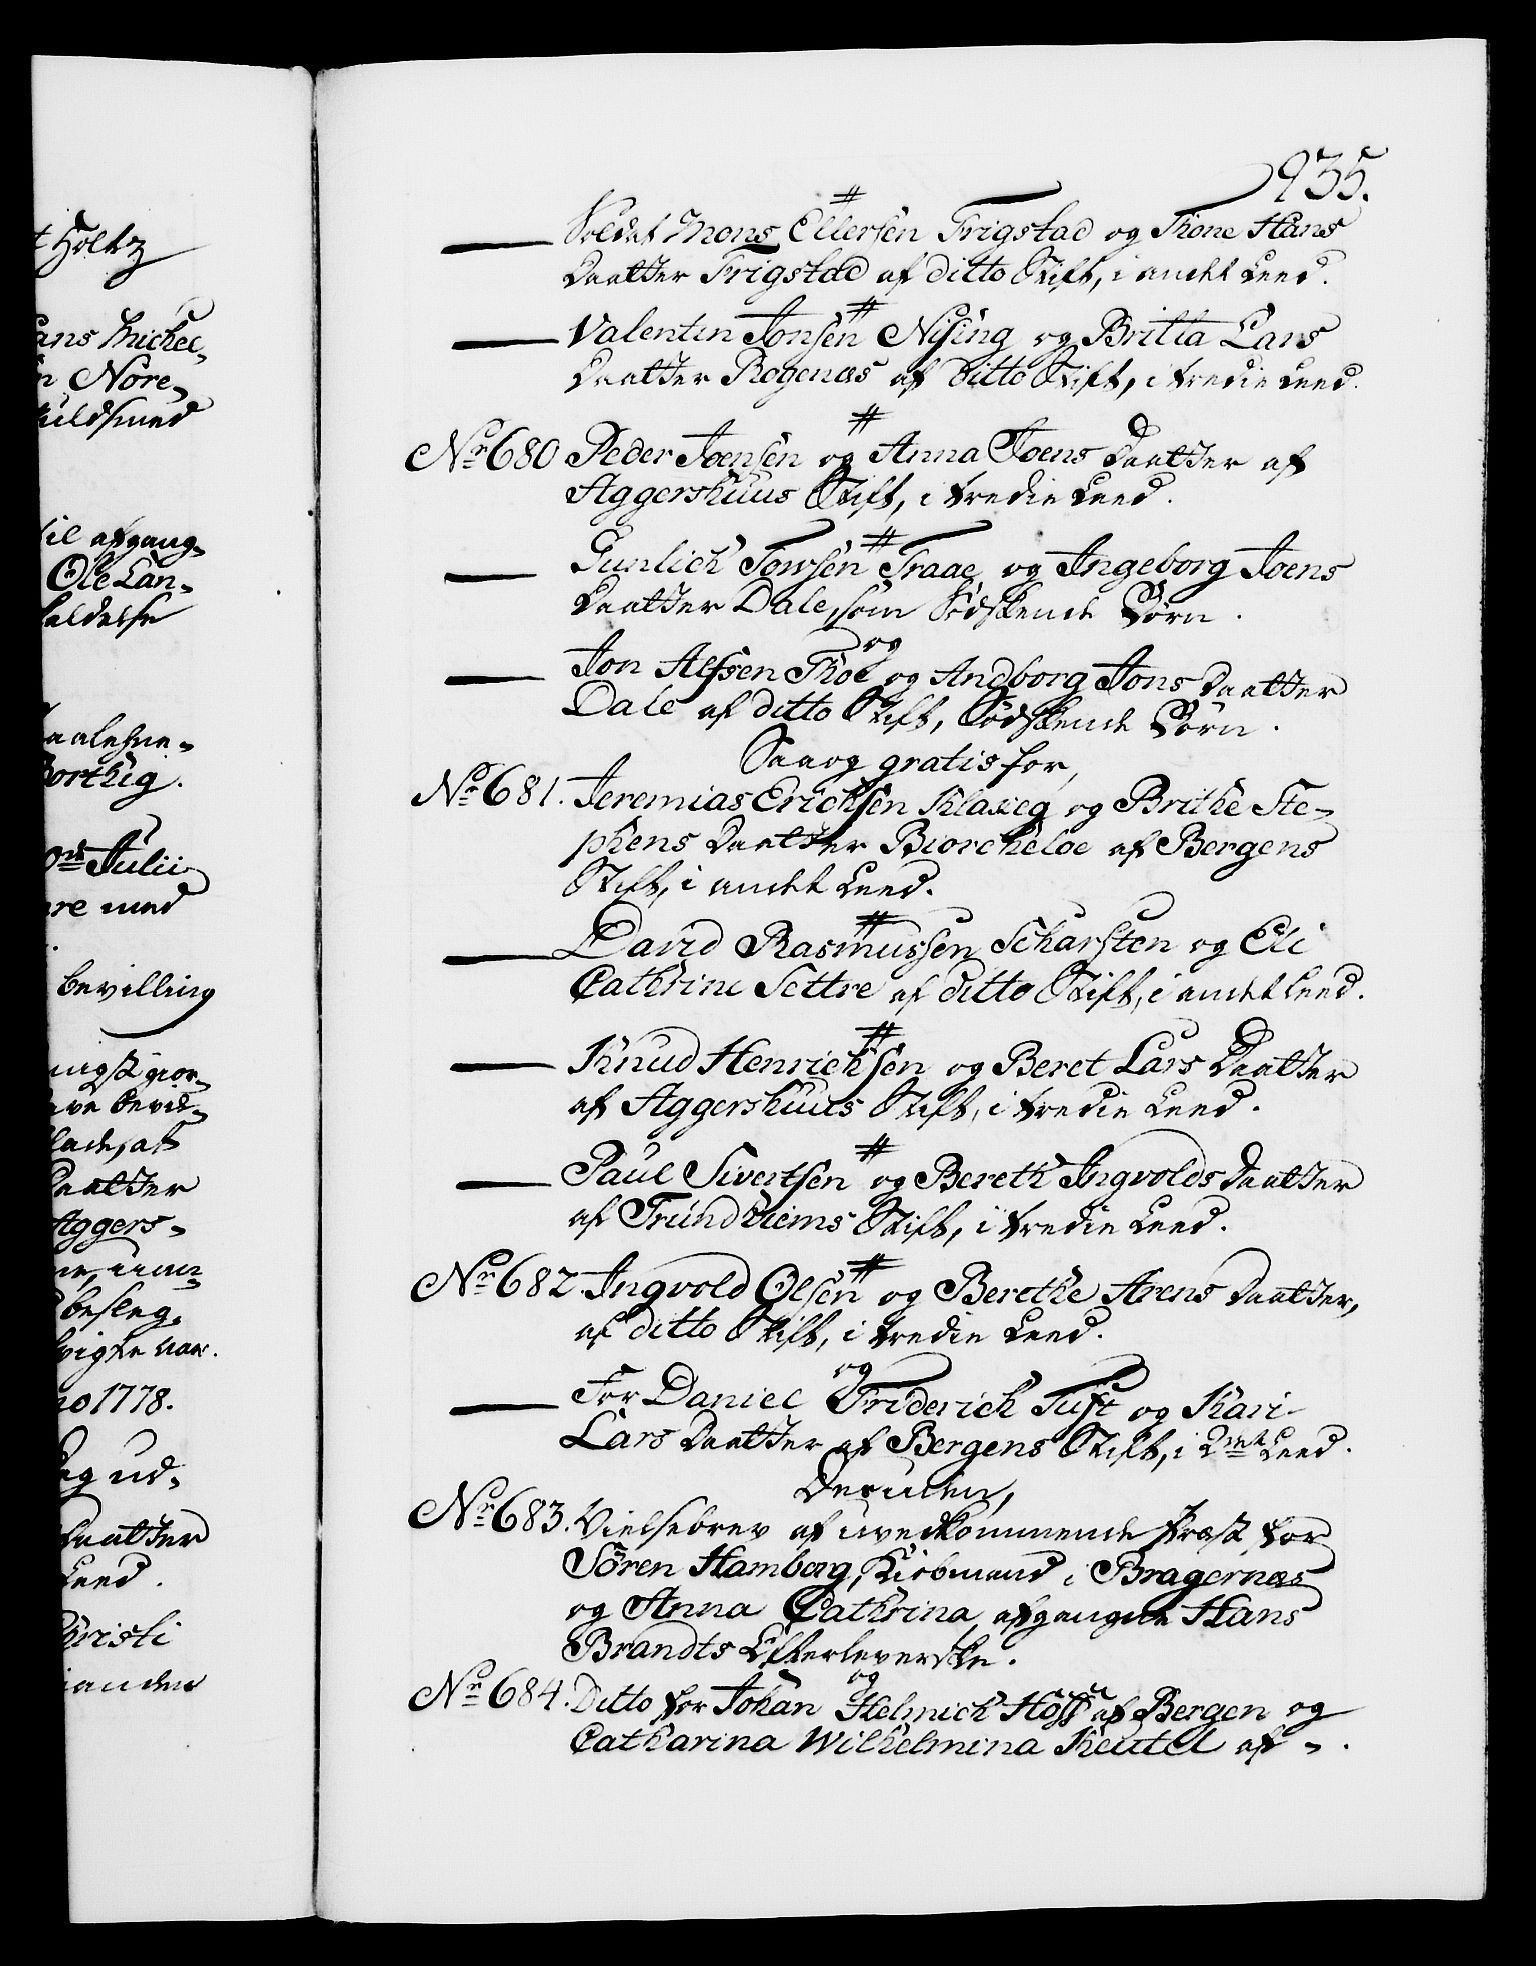 t Holtz
ans Michel-
n Nore-
uldsmed
til afgang-
Ole Lan-
holdelse
Borthig.
Julii
re med
bevilling
ringst gior-
lade, at
Daatter
Aggers-
besleg-
no 1778.
og ud-
Daatter
Leed.
Christi
935.
#
— Soldat Mons Ellersen Frigstad og Thone Hans
Daatter Frigstad af ditto Stift, i andet Leed.
#
— Valentin Jonsen Nising og Britta Lars
Daatter Rogenæs af ditto Stift, i tredie Leed.
#
No 680 Peder Joensen og Anna Joens Daatter af
Aggershuus Stift, i tredie Leed.
#
— Gunlich Torsen Traae og Ingeborg Joens
Daatter Dale, som Södskende Börn.
og
— Jon Alfsen Thoe og Andborg Jons Daatter
Dale af ditto Stift, Södskende Börn.
Saa og gratis for,
No 681. Jeremias Erichsen Klaxeg og Brithe Ste-
phens Daatter Biorcheloe af Bergens
Stift, i andet Leed.
#
— David Rasmussen Scharsten og Eli
Cathrine Settre af ditto Stift, i andet Leed.
#
— Knud Henrichsen og Beret Lars Daatter
af Aggershuus Stift, i tredie Leed.
#
— Paul Sivertsen og Bereth Ingvolds Daatter
af Trundhiems Stift, i tredie Leed.
#
No 682. Ingvold Olsen og Berethe Arens Daatter,
af ditto Stift, i tredie Leed.
og
— For Daniel Friderich Tuft og Kari
Lars Daatter af Bergens Stift, i 2det Leed.
Desuden,
No 683. Vielsebrev af uvedkommende Præst for
Sören Hamborg, Kiöbmand i Bragernæs
og Anna Cathrina, afgangne Hans
Brandts Efterleverske.
og
No 684. Ditto for Johan Helmich Hoff af Bergen og
Catharina Wilhelmina Keutel af -.